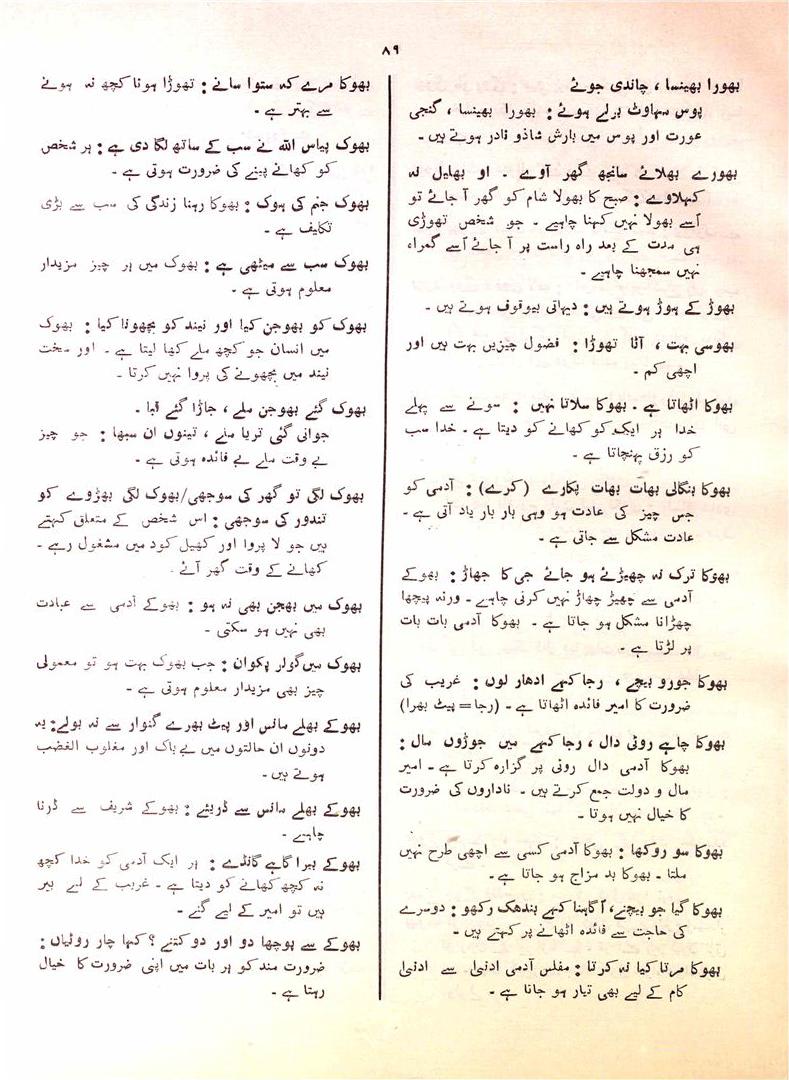 ۸۹
بھورا بھینسا ، چاندی جوئے
پوس سہاوٹ برلے ہوئے : بھورا بھینسا ، گنجی
عورت اور پوس میں بارش شاذو نادر ہوتے ہیں۔
بھورے بھلائے سانجھ گھر آوے ۔ او بھلیل نہ
کہلاوے : صبح کا بھولا شام کو گھر آ جائے تو
اُسے بھولا نہیں کہنا چاہیے ۔ جو شخص تھوڑی
ہی مدت کے بعد راہ راست پر آ جائے اُسے گمراہ
نہیں سمجھنا چاہیے ۔
بھوڑ کے ہوڑ ہوتے ہیں : دیہاتی بیوقوف ہوتے ہیں ۔
بھوسی بہت ، آٹا تھوڑا : فضول چیزیں بہت ہیں اور
اچھی کم ۔
بھوکا اٹھاتا ہے ۔ بھوکا سلاتا نہیں : سونے سے پہلے
خدا ہر ایک کو کھانے کو دیتا ہے ۔ خدا سب
کو رزق پہنچاتا ہے ۔
بھوکا بنگالی بھات بھات پکارے (کرے) : آدمی کو
جس چیز کی عادت ہو وہی بار بار یاد آتی ہے ۔
عادت مشکل سے جاتی ہے ۔
بھوکا ترک نہ چھیڑئے ہو جائے جی کا جھاڑ : بھوکے
آدمی سے چھیڑ چھاڑ نہیں کرنی چاہیے ۔ ورنہ پیچھا
چھڑانا مشکل ہو جاتا ہے ۔ بھوکا آدمی بات بات
پر لڑتا ہے ۔
بھوکا جورو بیچے ، رجا کہے ادھار لوں : غریب کی
ضرورت کا امیر فائدہ اٹھاتا ہے ۔ (رجا = پیٹ بھرا)
بھوکا چاہے روٹی دال ، رجا کہے میں جوڑوں مال :
بھوکا آدمی دال روٹی پر گزارہ کرتا ہے ۔ امیر
مال و دولت جمع کرتے ہیں ۔ ناداروں کی ضرورت
کا خیال نہیں ہوتا ۔
بھوکا سو روکھا : بھوکا آدمی کسی سے اچھی طرح نہیں
ملتا ۔ بھوکا بد مزاج ہو جاتا ہے ۔
بھوکا گیا جو بیچنے، آگاہنا کہے بندھک رکھو : دوسرے
کی حاجت سے فائدہ اٹھانے پر کہتے ہیں ۔
بھوکا مرتا کیا نہ کرتا : مفلس آدمی ادنیٰ سے ادنیٰ
کام کے لیے بھی تیار ہو جاتا ہے ۔
بھوکا مرے کہ ستوا سانے : تھوڑا ہونا کچھ نہ ہونے
سے بہتر ہے ۔
بھوک پیاس اللہ نے سب کے ساتھ لگا دی ہے : ہر شخص
کو کھانے پینے کی ضرورت ہوتی ہے ۔
بھوک جنم کی ہوک : بھوکا رہنا زندگی کی سب سے بڑی
تکلیف ہے ۔
بھوک سب سے میٹھی ہے : بھوک میں ہر چیز مزیدار
معلوم ہوتی ہے ۔
بھوک کو بھوجن کیا اور نیند کو بچھونا کیا : بھوک
میں انسان جو کچھ ملے کھا لیتا ہے ۔ اور سخت
نیند میں بچھونے کی پروا نہیں کرتا ۔
بھوک گئے بھوجن ملے ، جاڑا گئے قبا ۔
جوانی گئی تریا ملے ، تینوں ان سبھا : جو چیز
بے وقت ملے بے فائدہ ہوتی ہے ۔
بھوک لگی تو گھر کی سوجھی/بھوک لگی بھڑوے کو
تندور کی سوجھی : اس شخص کے متعلق کہتے
ہیں جو لا پروا اور کھیل کود میں مشغول رہے ۔
کھانے کے وقت گھر آئے ۔
بھوک میں بھجن بھی نہ ہو : بھوکے آدمی سے عبادت
بھی نہیں ہو سکتی ۔
بھوک میں گولر پکوان : جب بھوک بہت ہو تو معمولی
چیز بھی مزیدار معلوم ہوتی ہے ۔
بھوکے بھلے مانس اور پیٹ بھرے گنوار سے نہ بولے : یہ
دونوں ان حالتوں میں بے باک اور مغلوب الغضب
ہوتے ہیں ۔
بھوکے بھلے مانس سے ڈریئے : بھوکے شریف سے ڈرنا
چاہیے ۔
بھوکے بیرا گاہے گانڈے : ہر ایک آدمی کو خدا کچھ
نہ کچھ کھانے کو دیتا ہے ۔ غریب کے لیے بیر
ہیں تو امیر کے لیے گنے ۔
بھوکے سے پوچھا دو اور دو کتنے ؟ کہا چار روٹیاں :
ضرورت مند کو ہر بات میں اپنی ضرورت کا خیال
رہتا ہے ۔